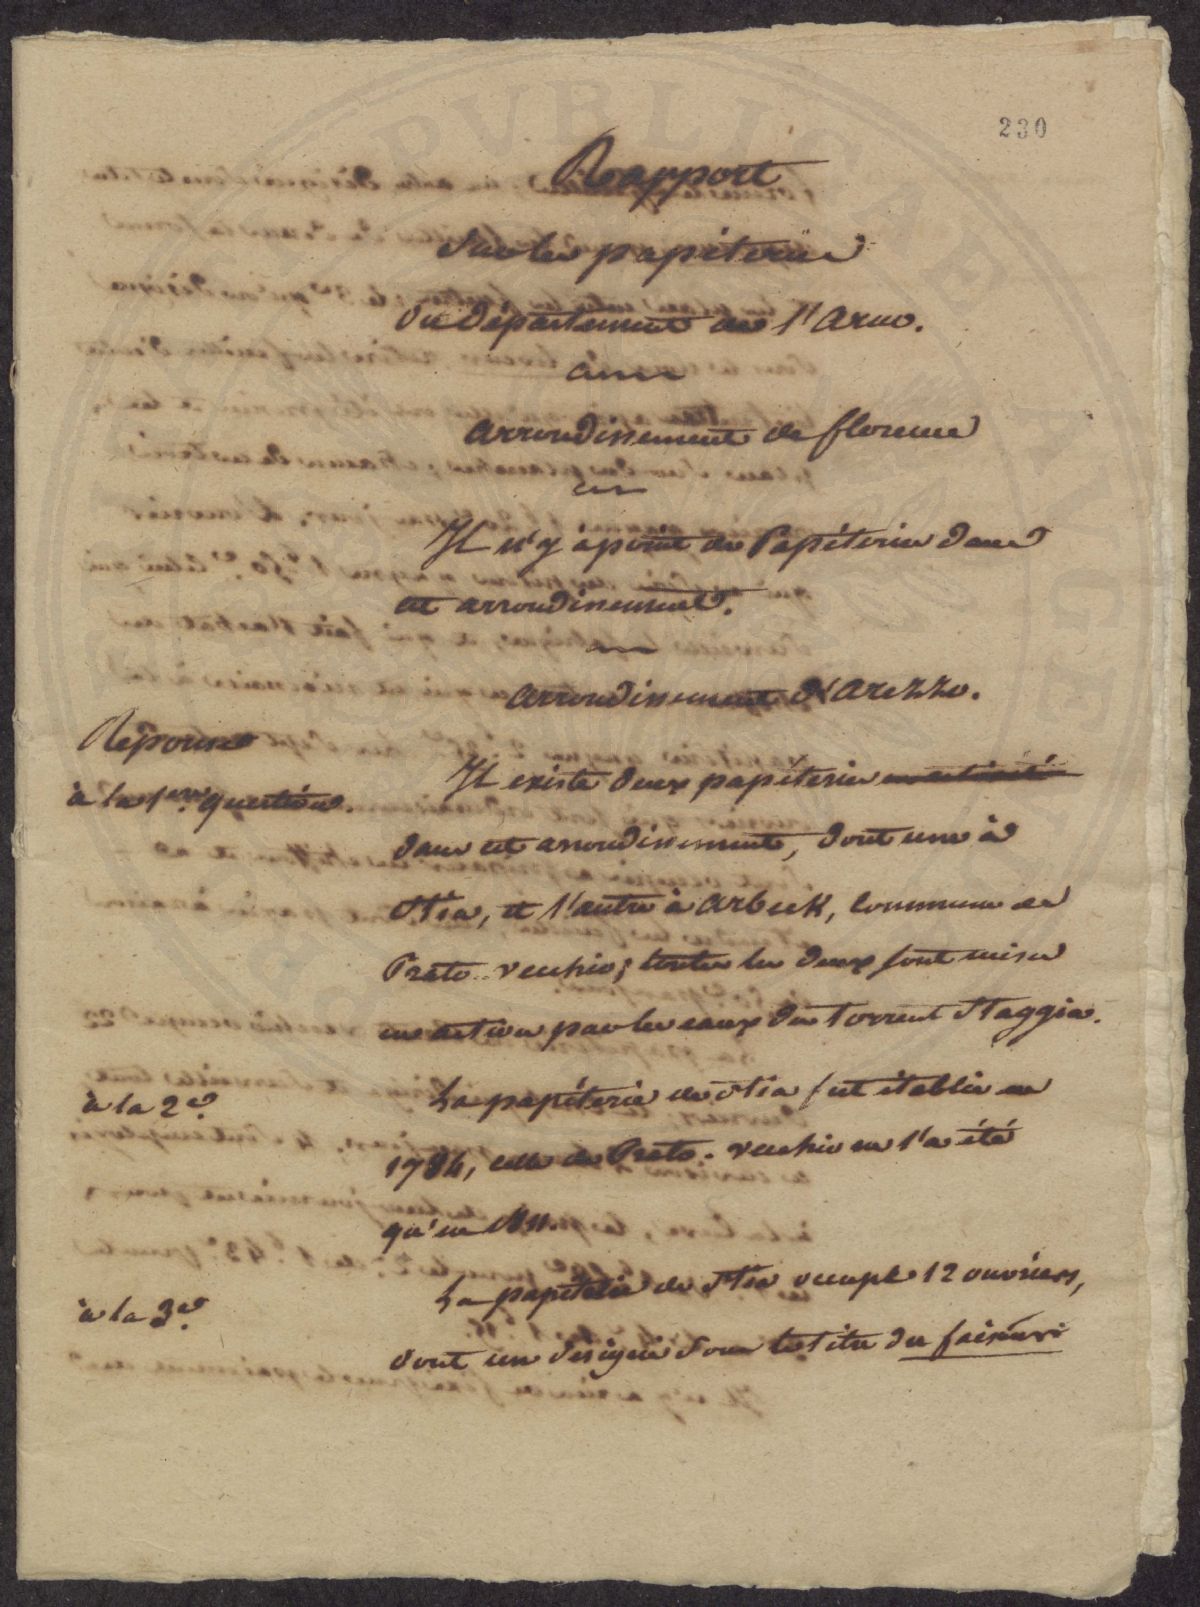 230
Rapport
Sur les papéteries
du département de l'Arno.
arrondissement de florence
Il n'y a point de Papéteries dans
cet arrondissement.
arrondissement d'Arezzo.
Réponse
à la 1ere question.
Il existe deux papeteries en activité
dans cet arrondissement, dont une à
Stia, et l'autre à , commune de
Prato-vecchio; toutes les deux sont mises
en action par les eaux du torrent Staggia.
à la 2e.
La papéterie de Stia fut établie en
1784, celle de Prato-vecchio ne l'a été
qu'en
à la 3e.
La papéterie de Stia occupe 12 ouvriers,
dont un désigné sous le titre de